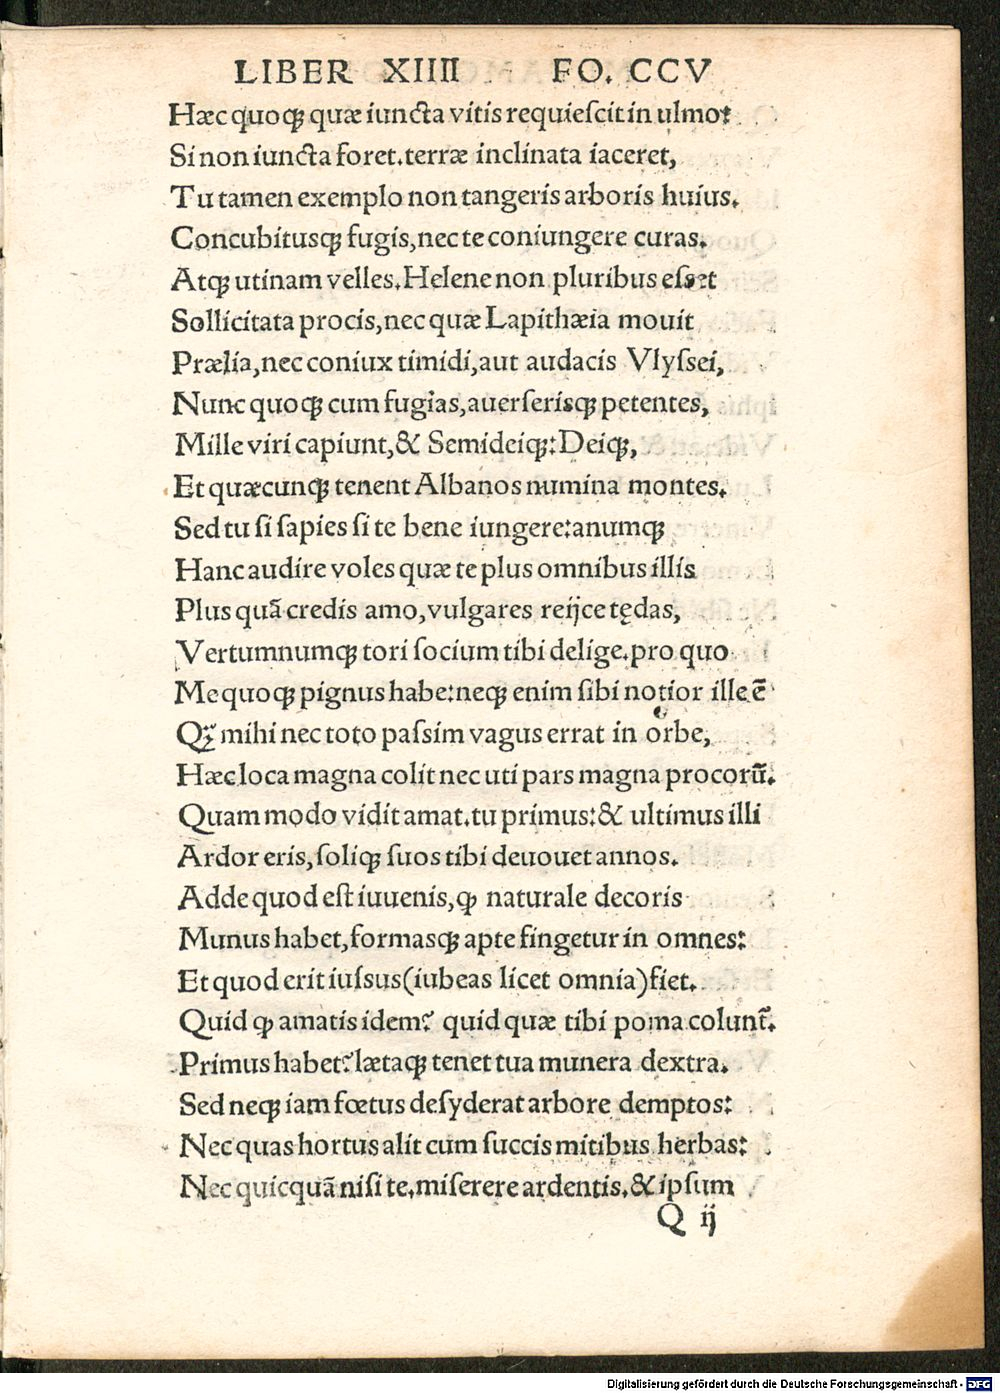 LIBER XIIII FO. CCV
Hæc quoqꝫ quæ iuncta vitis requieſcit in ulmo:
Si non iuncta foret. terræ inclinata iaceret,
Tu tamen exemplo non tangeris arboris huius.
Concubitusqꝫ fugis, nec te coniungere curas.
Atqꝫ utinam velles. Helene non pluribus eſset
Sollicitata procis, nec quæ Lapithæia mouit
Prælia, nec coniux timidi, aut audacis Vlyſsei,
Nunc quoqꝫ cum fugias, auerſerisqꝫ petentes,
Mille viri capiunt, & Semideiqꝫ: Deiqꝫ,
Et quæcunqꝫ tenent Albanos numina montes.
Sed tu ſi ſapies ſi te bene iungere: anumqꝫ
Hanc audire voles quæ te plus omnibus illis
Plus quã credis amo, vulgares reijce tędas,
Vertumnumqꝫ tori ſocium tibi delige. pro quo
Me quoqꝫ pignus habe: neqꝫ enim ſibi notior ille ē
Qꝫ̃ mihi nec toto paſsim vagus errat in orbe,
Hæc loca magna colit nec uti pars magna procorũ.
Quam modo vidit amat. tu primus: & ultimus illi
Ardor eris, ſoliqꝫ ſuos tibi deuouet annos.
Adde quod eſt iuuenis, ꝙ naturale decoris
Munus habet, formasqꝫ apte fingetur in omnes:
Et quod erit iuſsus (iubeas licet omnia) fiet.
Quid ꝙ amatis idem? quid quæ tibi poma colunt᷑.
Primus habet? lætaqꝫ tenet tua munera dextra.
Sed neqꝫ iam fœtus deſyderat arbore demptos:
Nec quas hortus alit cum ſuccis mitibus herbas:
Nec quicquã niſi te. miſerere ardentis. & ipſum
Q ij
Digitalisierung gefördert durch die Deutsche Forschungsgemeinschaft - DFG